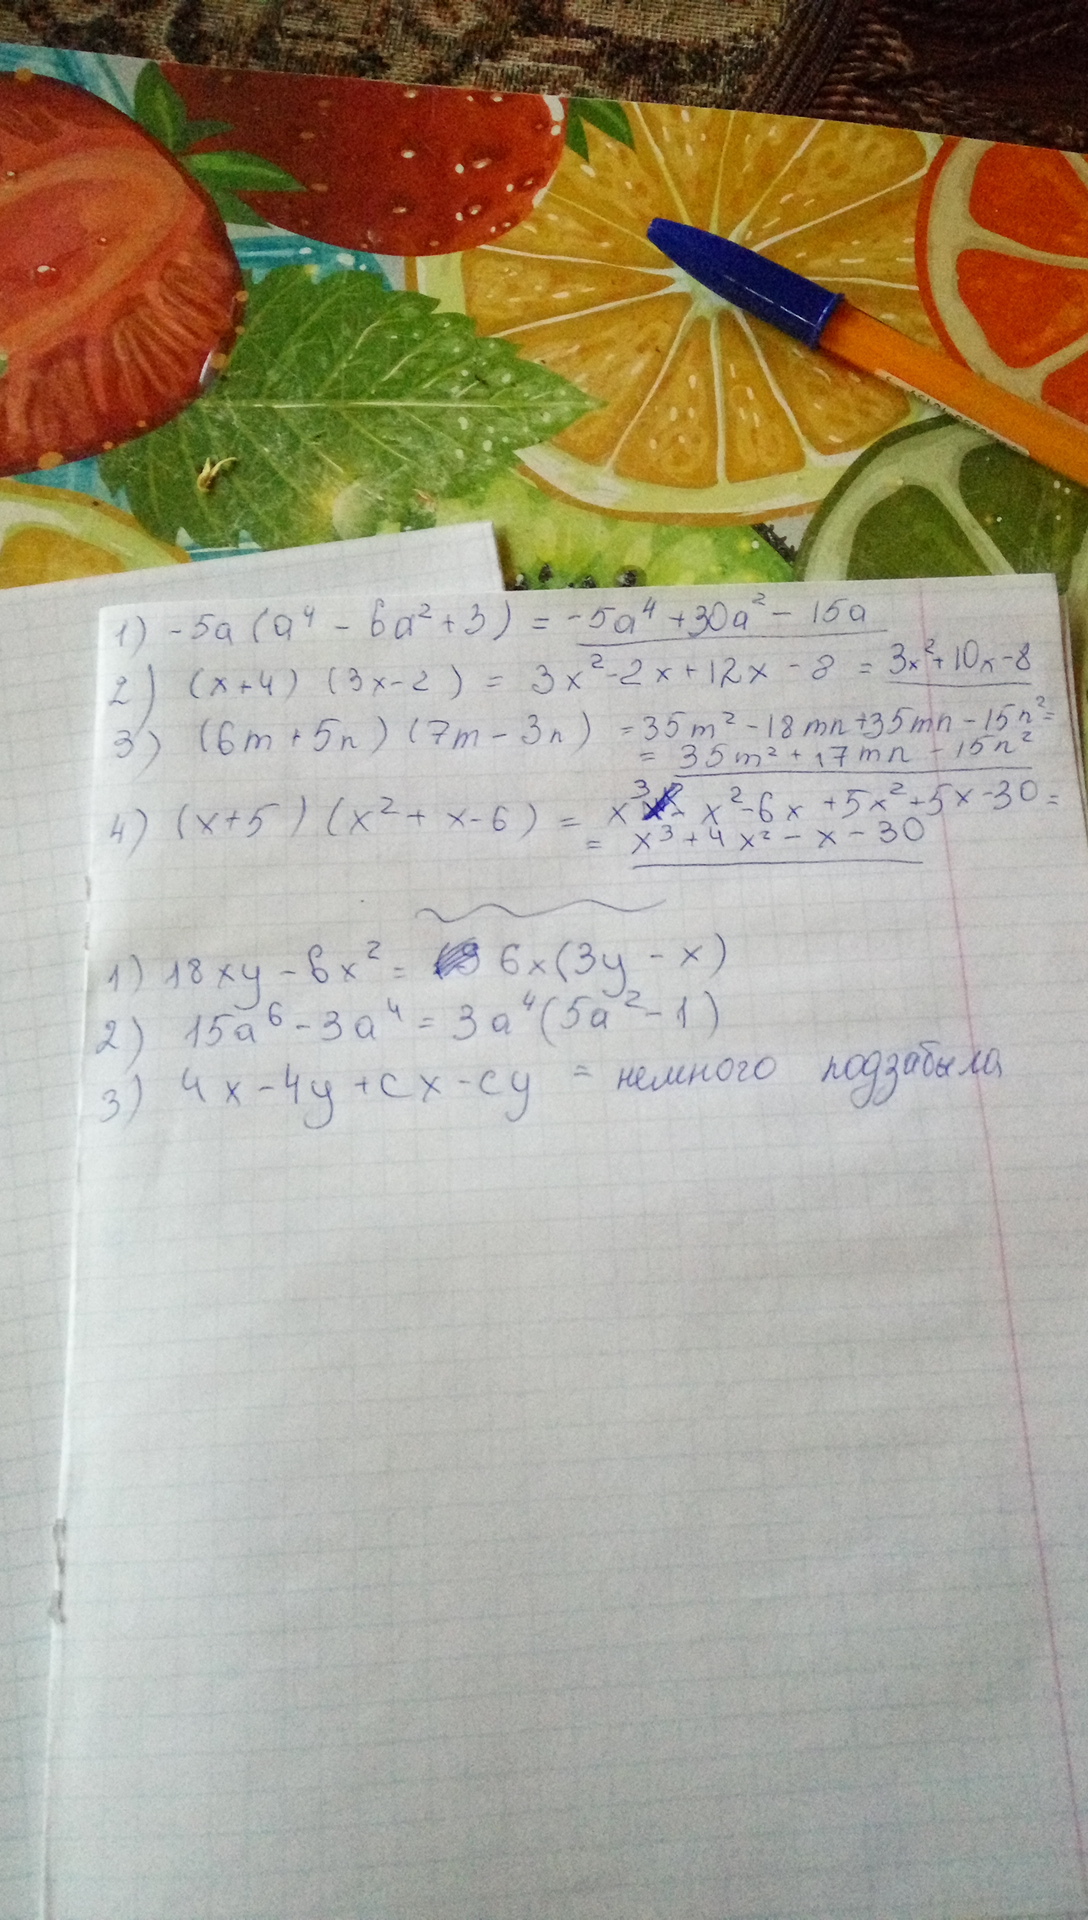 1) -5a (a⁴ - 6a² + 3) = -5a⁴ + 30a² - 15a
2) (x+4) (3x-2) = 3x² - 2x + 12x - 8 = 3x² + 10x - 8
3) (6m + 5n) (7m - 3n) = 35m² - 18mn + 35mn - 15n² =
= 35m² + 17mn - 15n²
4) (x+5) (x² + x - 6) = x³ x² - 6x + 5x² + 5x - 30 =
= x³ + 4x² - x - 30
1) 18xy - 6x² = 6x (3y - x)
2) 15a⁶ - 3a⁴ = 3a⁴ (5a² - 1)
3) 4x - 4y + cx - cy = немного подзабыла